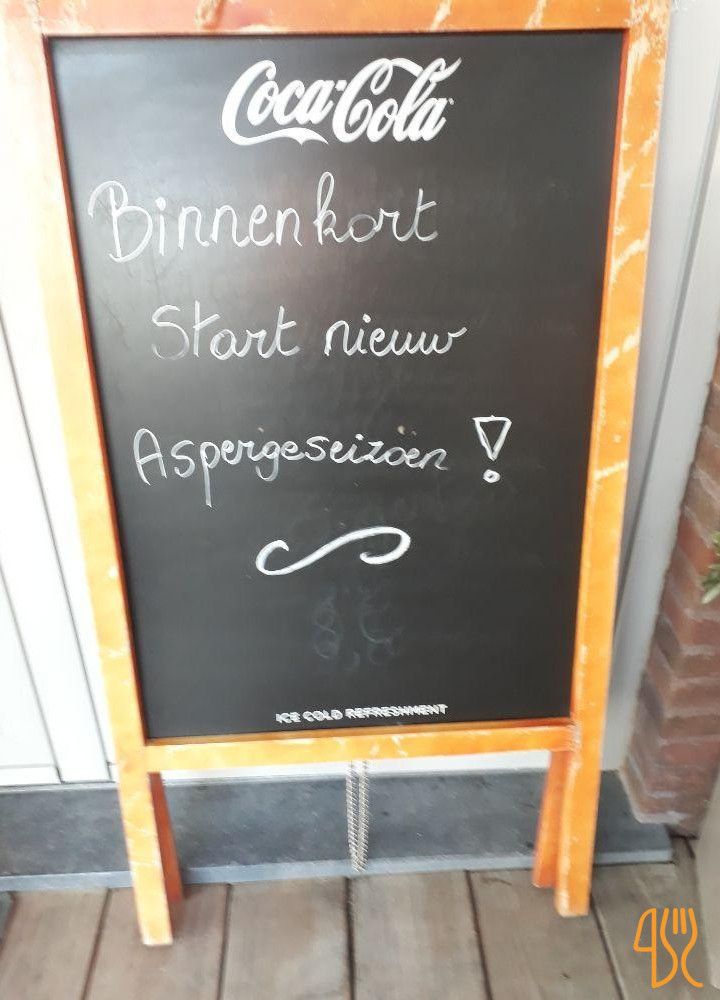 Coca-Cola
Binnenkort
Start nieuw
Aspergeseizoen !
ICE COLD REFRESHMENT